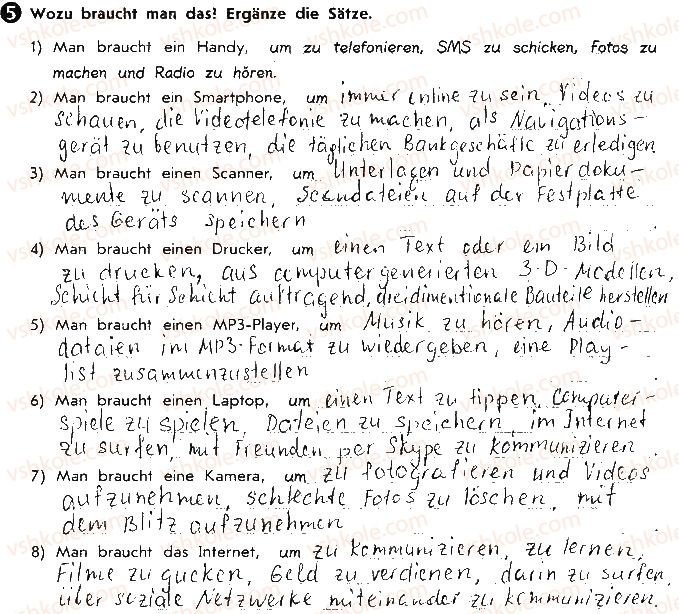 5 Wozu braucht man das? Ergänze die Sätze.
1) Man braucht ein Handy, um zu telefonieren, SMS zu schicken, Fotos zu
machen und Radio zu hören.
2) Man braucht ein Smartphone, um immer online zu sein, Videos zu
schauen, die Videotelefonie zu machen, als Navigations-
gerät zu benutzen, die täglichen Bankgeschäfte zu erledigen
3) Man braucht einen Scanner, um Unterlagen und Papierdoku-
mente zu scannen, Scandateien auf der Festplatte
des Geräts speichern
4) Man braucht einen Drucker, um einen Text oder ein Bild
zu drucken, aus computergenerierten 3-D-Modellen,
Schicht für Schicht auftragend, dreidimentionale Bauteile herstellen
5) Man braucht einen MP3-Player, um Musik zu hören, Audio-
dataien im MP3-Format zu wiedergeben, eine Play-
list zusammenzustellen
6) Man braucht einen Laptop, um einen Text zu tippen, Computer-
spiele zu spielen, Dateien zu speichern, im Internet
zu surfen, mit Freunden per Skype zu kommunizieren
7) Man braucht eine Kamera, um zu fotografieren und Videos
aufzunehmen, schlechte Fotos zu löschen, mit
dem Blitz aufzunehmen
8) Man braucht das Internet, um zu kommunizieren, zu lernen,
Filme zu gucken, Geld zu verdienen, darin zu surfen,
über soziale Netzwerke miteinander zu kommunizieren